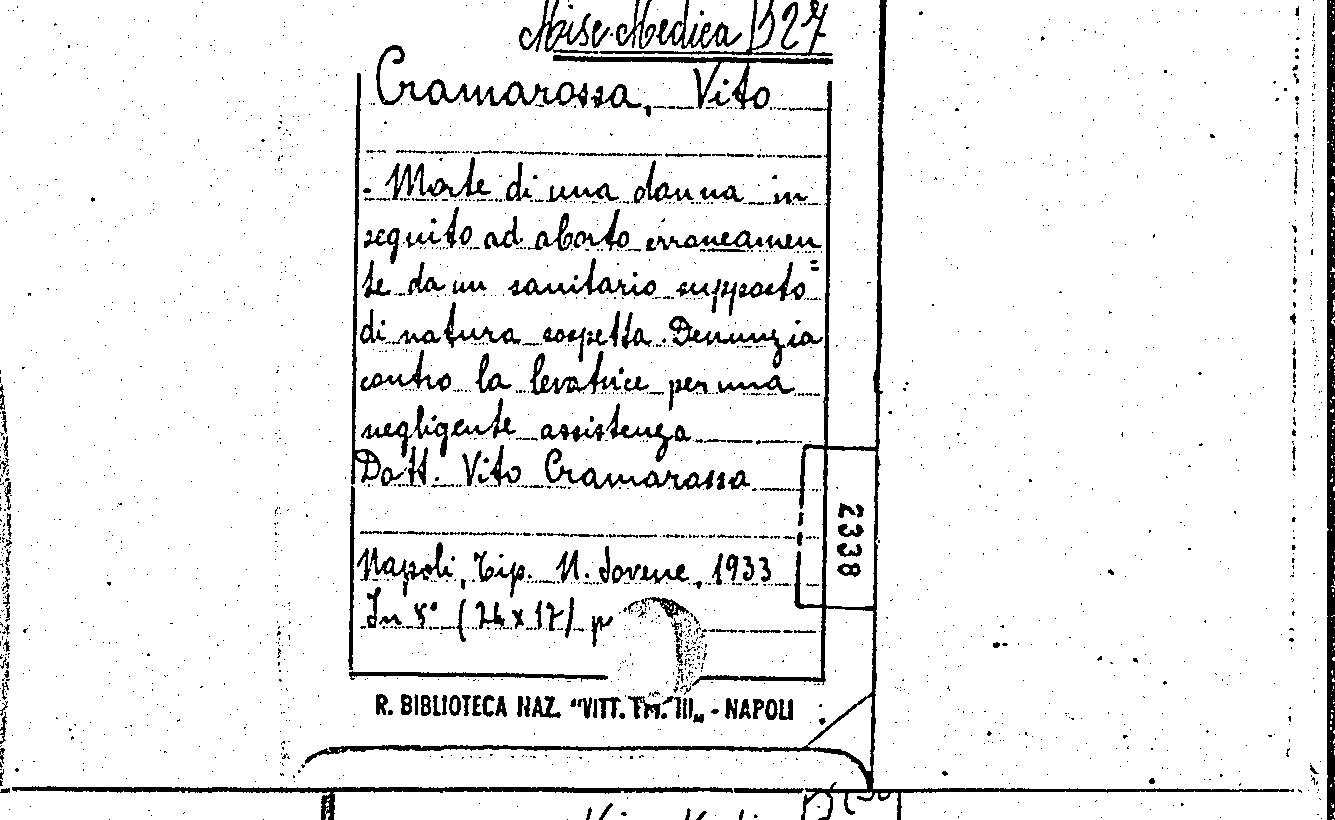 Misc. Medica B 27
Cramarossa, Vito
- Morte di una donna in
seguito ad aborto erroneamen=
te da un sanitario supposto
di natura sospetta. Denunzia
contro la levatrice per una
negligente assistenza
Dott. Vito Cramarossa
2338
Napoli, Tip. N. Jovene, 1933
In 8° (24 x 17) p
R. BIBLIOTECA NAZ. "VITT. EM. III„ - NAPOLI